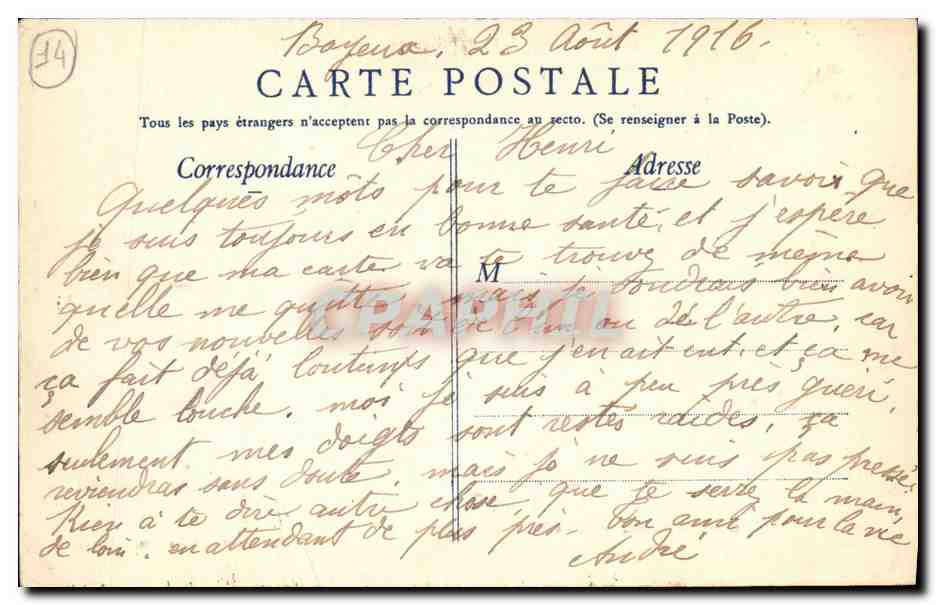 14
Bayeux, 23 Août 1916.
CARTE POSTALE
Tous les pays étrangers n'acceptent pas la correspondance au recto. (Se renseigner à la Poste).
Cher Henri
Correspondance
Adresse
Quelques môts pour te faire savoir que
je suis toujours en bonne santé, et j'espère
bien que ma carte va te trouvez de même
M
quelle me quitte, mais je voudrais bien avoir
de vos nouvelles soit de l'un ou de l'autre, car
ça fait déjà lontemps que j'en ait eut, et ça me
semble louche. moi je suis à peu près guéri,
seulement mes doigts sont restés raides, ça
reviendras sans doute, mais je ne suis pas pressé.
Rien à te dire autre chose que te serrez la main,
de loin. en attendant de plus près. ton ami pour la vie
André
CPARAMA